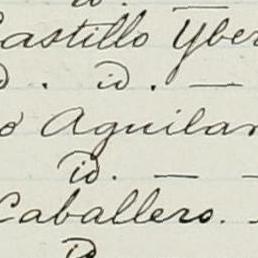 id.
Castillo Yber
id . id . —
o Aguilar
id. — —
Caballero. -
id